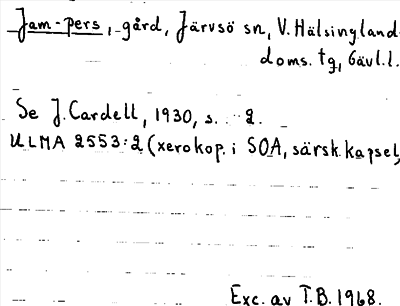 Jam-pers, gård, Järvsö sn, V. Hälsingland
doms. tg, Gävl.l.
Se J. Cardell, 1930, s. 2.
ULMA 2553:2 (xerokop. i SOA, särsk. kapsel,
Exc. av T.B. 1968.